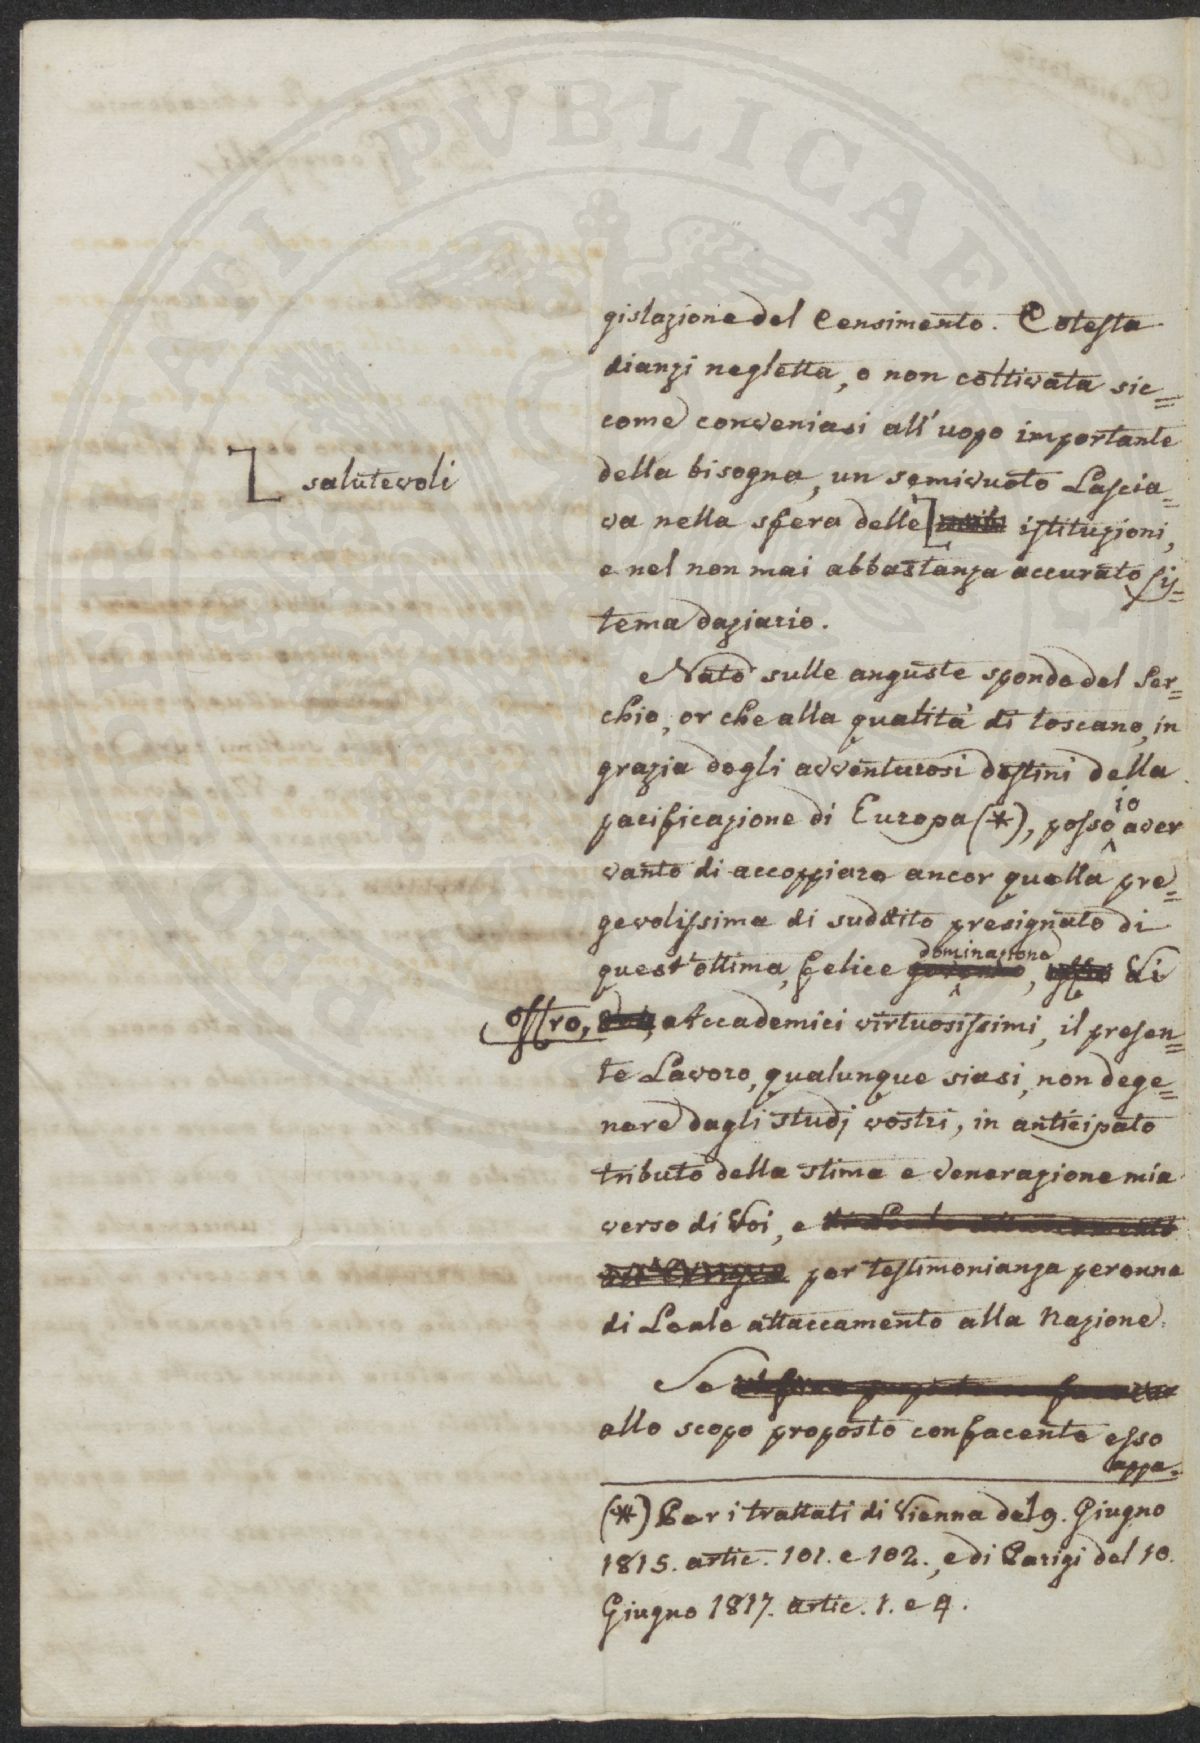 gislazione del Censimento. Cotesta
dianzi negletta, o non coltivata sic=
come conveniasi all'uopo importante
della bisogna, un semivuoto Lascia=
salutevoli
va nella sfera delle utili istituzioni,
e nel non mai abbastanza accurato Sis=
tema daziario.
Nato sulle anguste sponde del Ser=
chio, or che alla qualità di toscano, in
grazia degli avventurosi destini della
pacificazione di Europa (*), posso io aver
vanto di accoppiare ancor quella pre=
gevolissima di suddito presignato di
dominazione
quest'ottima, felice governo, offro Vi
offro, Accademici virtuosissimi, il presen=
te Lavoro, qualunque siasi, non dege=
nere dagli studj vostri, in anticipato
tributo della stima e venerazione mia
verso di Voi, e di Leale attaccamento
per testimonianza perenne
di Leale attaccamento alla Nazione.
Se
allo scopo proposto confacente esso
appa=
(*) Per i trattati di Vienna del 9. Giugno
1815. artic. 101. e 102., e di Parigi del 10.
Giugno 1817. artic. 1. e 4.
PUBLICAE